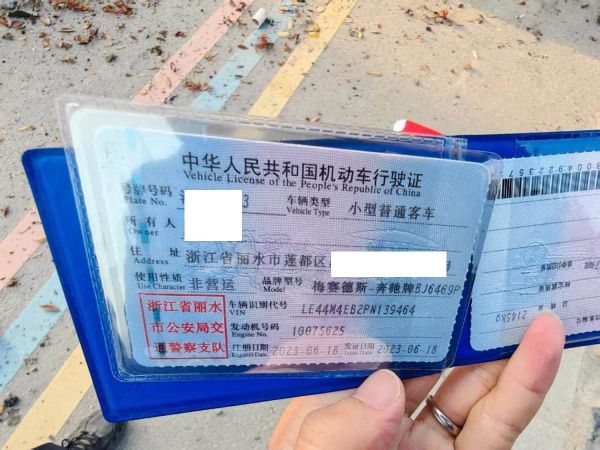 中华人民共和国机动车行驶证
Vehicle License of the People's Republic of China
号牌号码 3 车辆类型 小型普通客车
Plate No. Vehicle Type
所有人
Owner
住址 浙江省丽水市莲都区
Address
使用性质 非营运 品牌型号 梅赛德斯-奔驰牌BJ6469P
Use Character Model
浙江省丽水
市公安局交
通警察支队
车辆识别代号 LE44M4EB2PN139464
VIN
发动机号码 10075625
Engine No.
注册日期 2023-06-18 发证日期 2023-06-18
Register Date Issue Date
2145kg